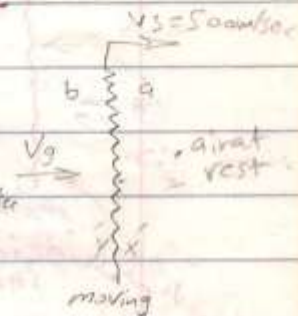 Vs=500m/sec
b a
Vg
air at
rest
y x
moving